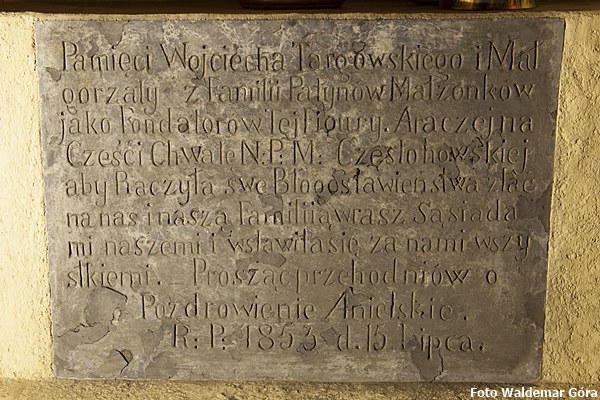 Pamięci Wojciecha Targowskiego i Mał
gorzały z Familii Pałynów Małzonków
jako Fondatorow Tej Figury. A raczej na
Cześci Chwałe N: P: M: Częstohowskiej
aby Raczyła swe Błogosławieństwa zlać
na nas i naszą Familiią wrasz Sąsiada
mi naszemi i wstawiła się za nami wszy
stkiemi. _ Prosząc przehodniów o
Pozdrowienie Anielskie.
R: P: 1853 d. 15 Lipca.
Foto Waldemar Góra